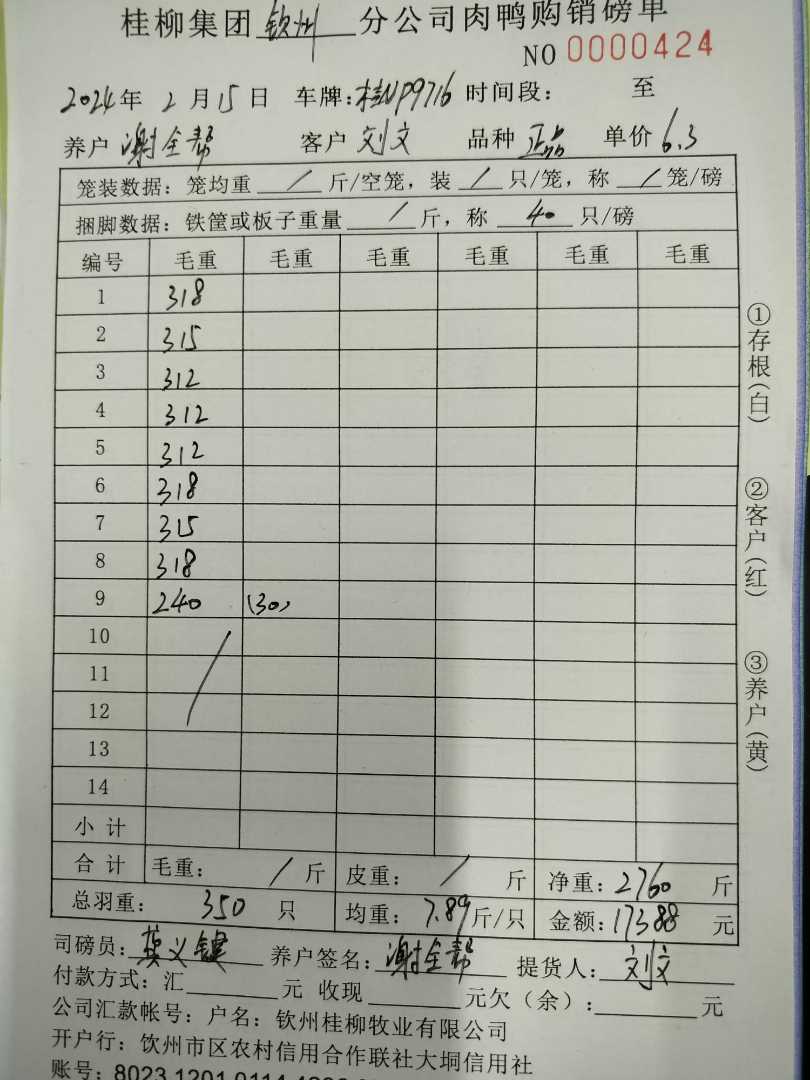 桂柳集团 钦州 分公司肉鸭购销磅单
NO 0000424
2024年 2月15日 车牌:桂NP9716 时间段: 至
养户 谢全帮 客户 刘文 品种 正品 单价 6.3
笼装数据:笼均重 / 斤/空笼,装 / 只/笼,称 / 笼/磅
捆脚数据:铁筐或板子重量 / 斤,称 40 只/磅
编号 毛重 毛重 毛重 毛重 毛重 毛重
1 318
2 315
3 312
4 312
5 312
6 318
7 315
8 318
9 240 (30)
10
11
12
13
14
小计
合计 毛重: / 斤 皮重: / 斤 净重:2760 斤
总羽重: 350 只 均重:7.89斤/只 金额:17388 元
司磅员: 养户签名:谢全帮 提货人:刘文
付款方式:汇 元 收现 元欠(余): 元
公司汇款帐号:户名:钦州桂柳牧业有限公司
开户行:钦州市区农村信用合作联社大垌信用社
账号:8023 1201 0114
①存根(白)
②客户(红)
③养户(黄)